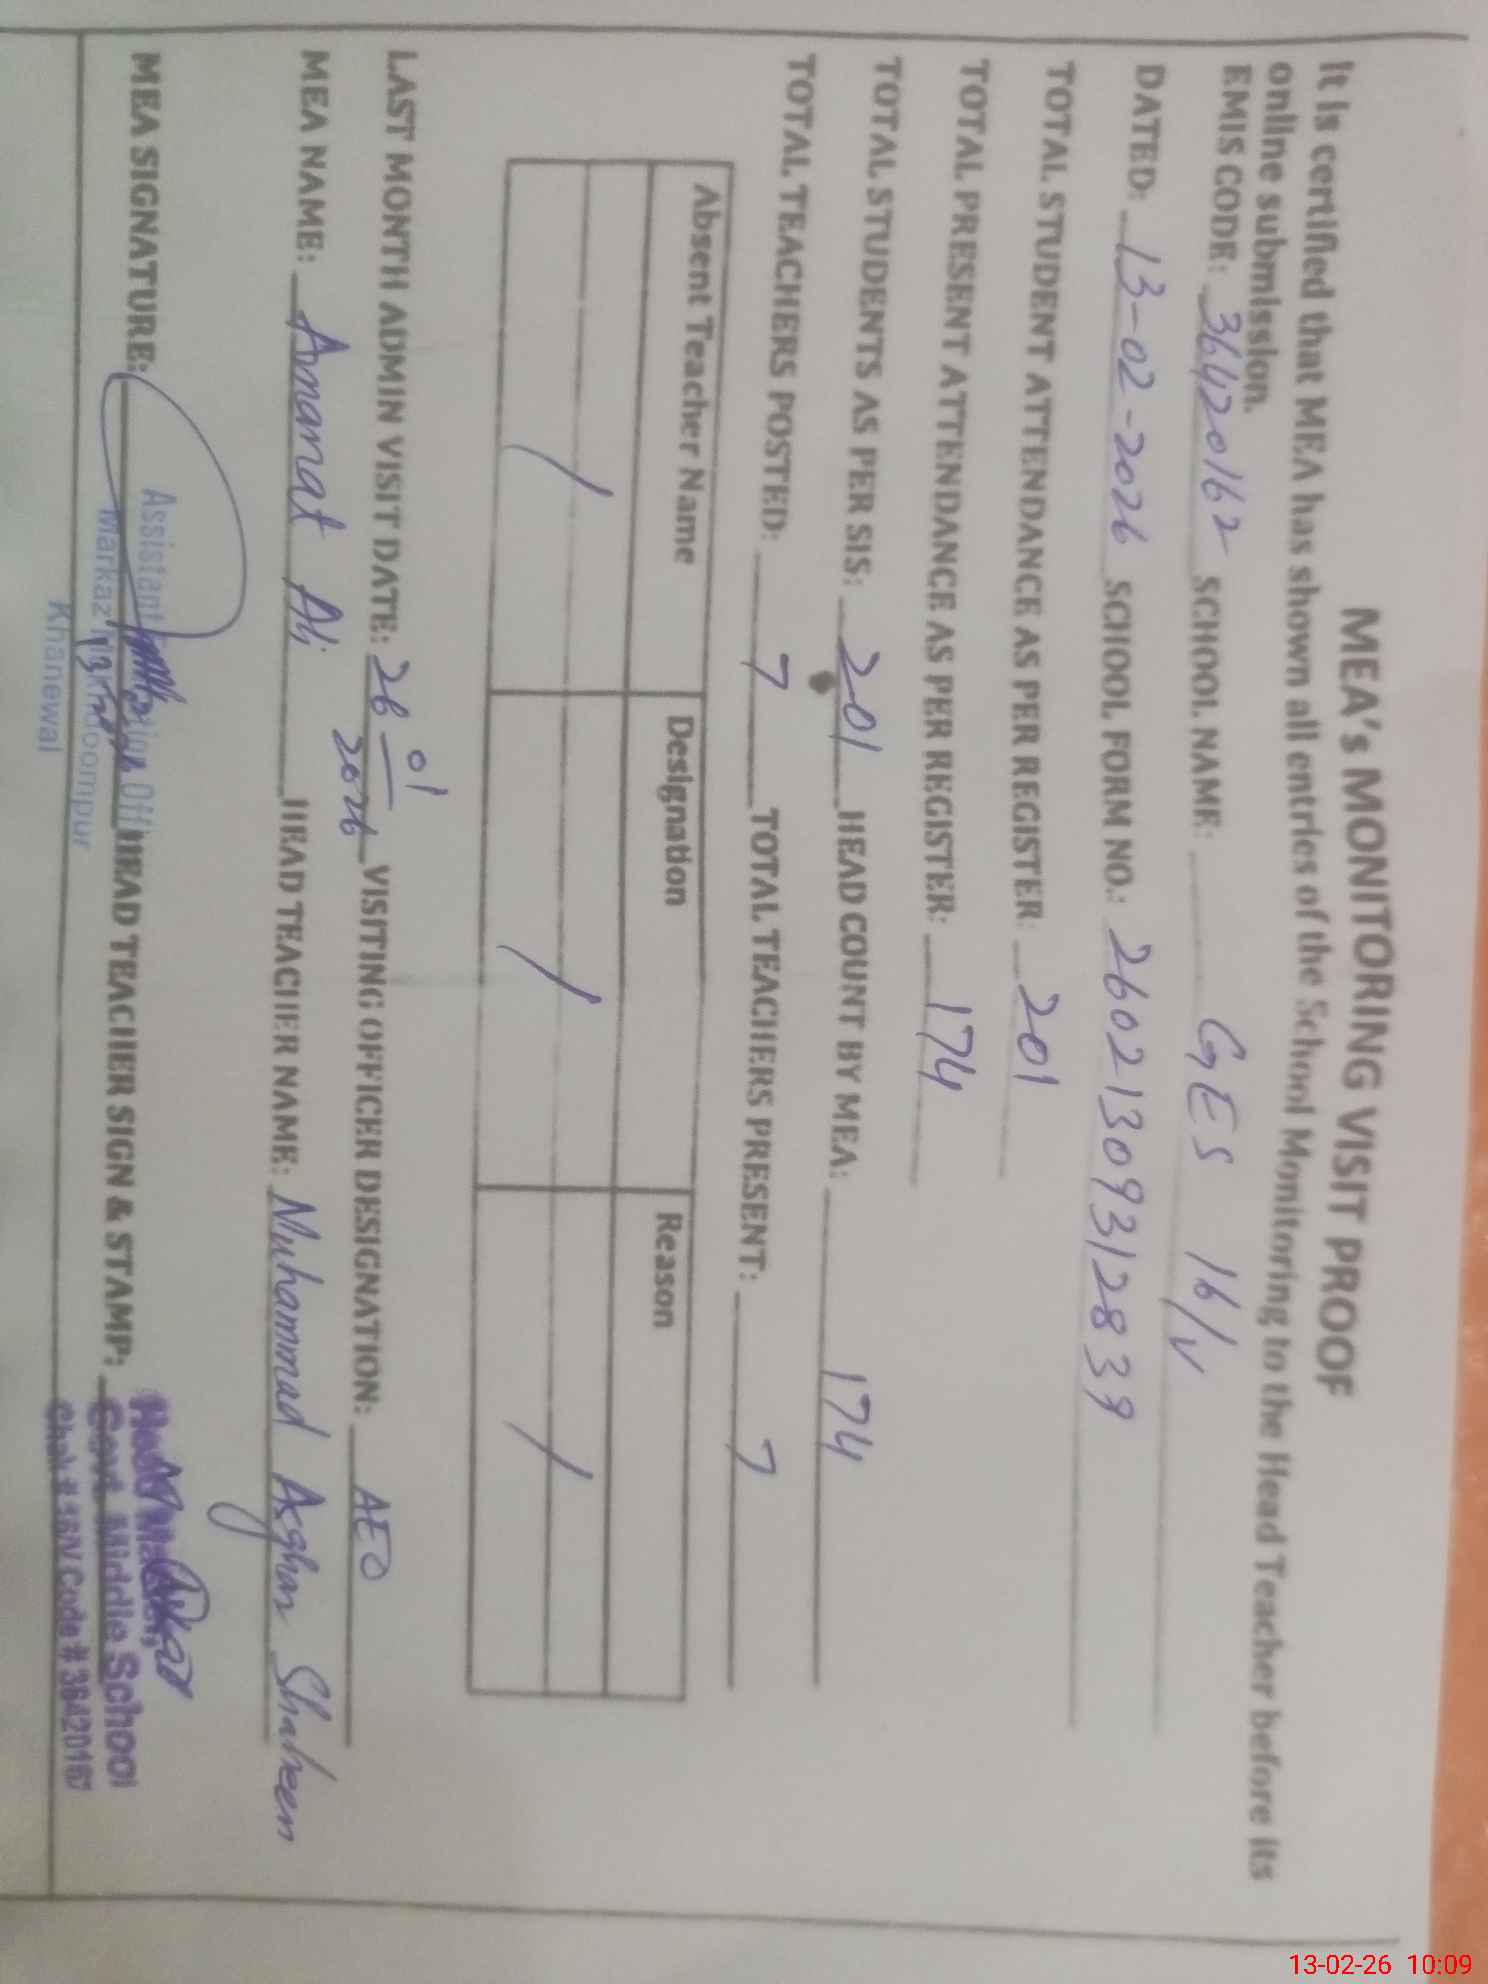 MEA's MONITORING VISIT PROOF
It is certified that MEA has shown all entries of the School Monitoring to the Head Teacher before its
online submission.
EMIS CODE: 36420162 SCHOOL NAME: GES 16/V
DATED: 13-02-2026 SCHOOL FORM NO.: 260213093128 39
TOTAL STUDENT ATTENDANCE AS PER REGISTER: 201
TOTAL PRESENT ATTENDANCE AS PER REGISTER: 174
TOTAL STUDENTS AS PER SIS: 201 HEAD COUNT BY MEA: 174
TOTAL TEACHERS POSTED: 7 TOTAL TEACHERS PRESENT: 7
Absent Teacher Name Designation Reason
/ / /
LAST MONTH ADMIN VISIT DATE: 26 01 2026 VISITING OFFICER DESIGNATION: AEO
MEA NAME: Amanat Ali HEAD TEACHER NAME: Muhammad Asghar Shaheen
MEA SIGNATURE: HEAD TEACHER SIGN & STAMP:
Assistant
Markaz
Khanewal
Govt. Middle School
Chak # 16/V Code # 36420162
13-02-26 10:09